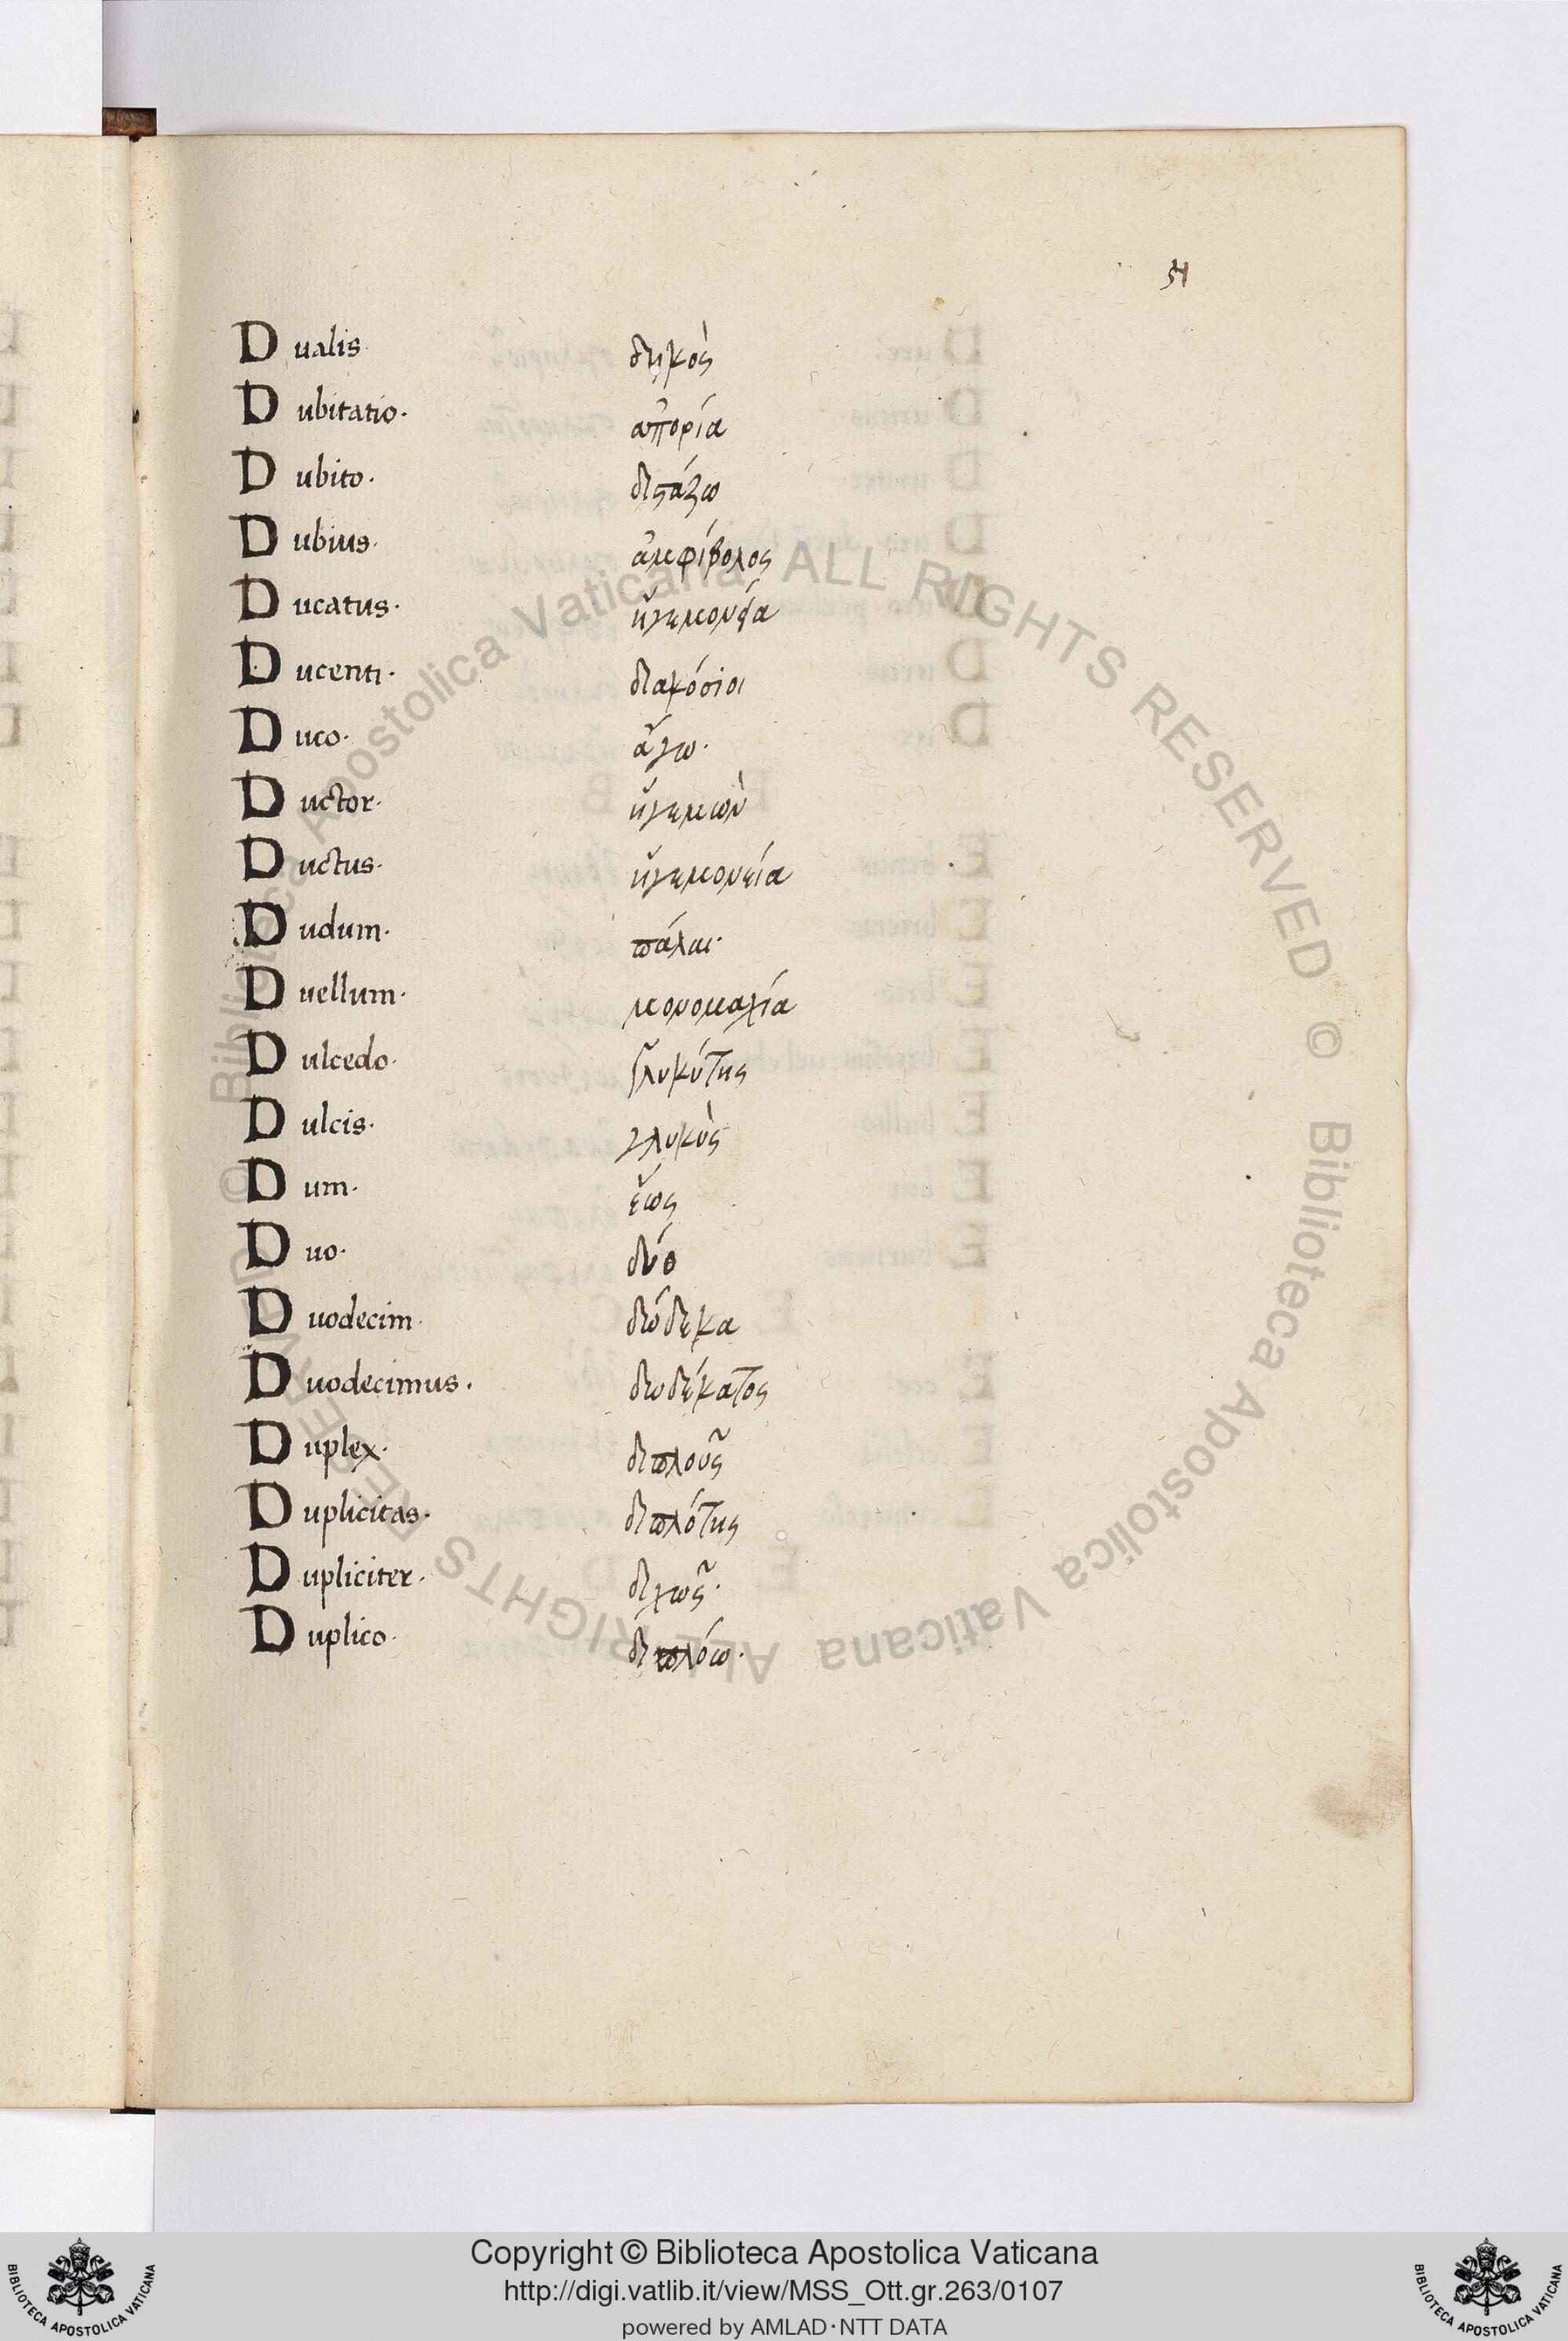 51
Dualis δηκὸς
Dubitatio· ἀπορία
Dubito· διστάζω
Dubius· ἀμφίβολος
Ducatus· ἡγεμονεία
Ducenti· διακόσιοι
Duco· ἄγω·
Ductor· ἡγεμὼν
Ductus· ἡγεμονεία
Dudum· πάλαι·
Duellum· μονομαχία
Dulcedo· γλυκύτης
Dulcis· γλυκὺς
Dum· ἕως
Duo· δύο
Duodecim· δώδεκα
Duodecimus· δωδέκατος
Duplex· διπλοῦς
Duplicitas· διπλότης
Dupliciter· διχῶς·
Duplico· διπλόω·
© Biblioteca Apostolica Vaticana ALL RIGHTS RESERVED © Biblioteca Apostolica Vaticana ALL RIGHTS RESERVED
Copyright © Biblioteca Apostolica Vaticana
http://digi.vatlib.it/view/MSS_Ott.gr.263/0107
powered by AMLAD·NTT DATA
BIBLIOTECA APOSTOLICA VATICANA
BIBLIOTECA APOSTOLICA VATICANA